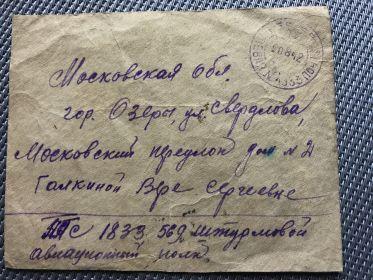 Московская Обл.
гор. Озеры, ул. Свердлова,
Московский дом № 2
Галкиной Вере Сергеевне
ППС 1833 569 штурмовой
авиационный полк